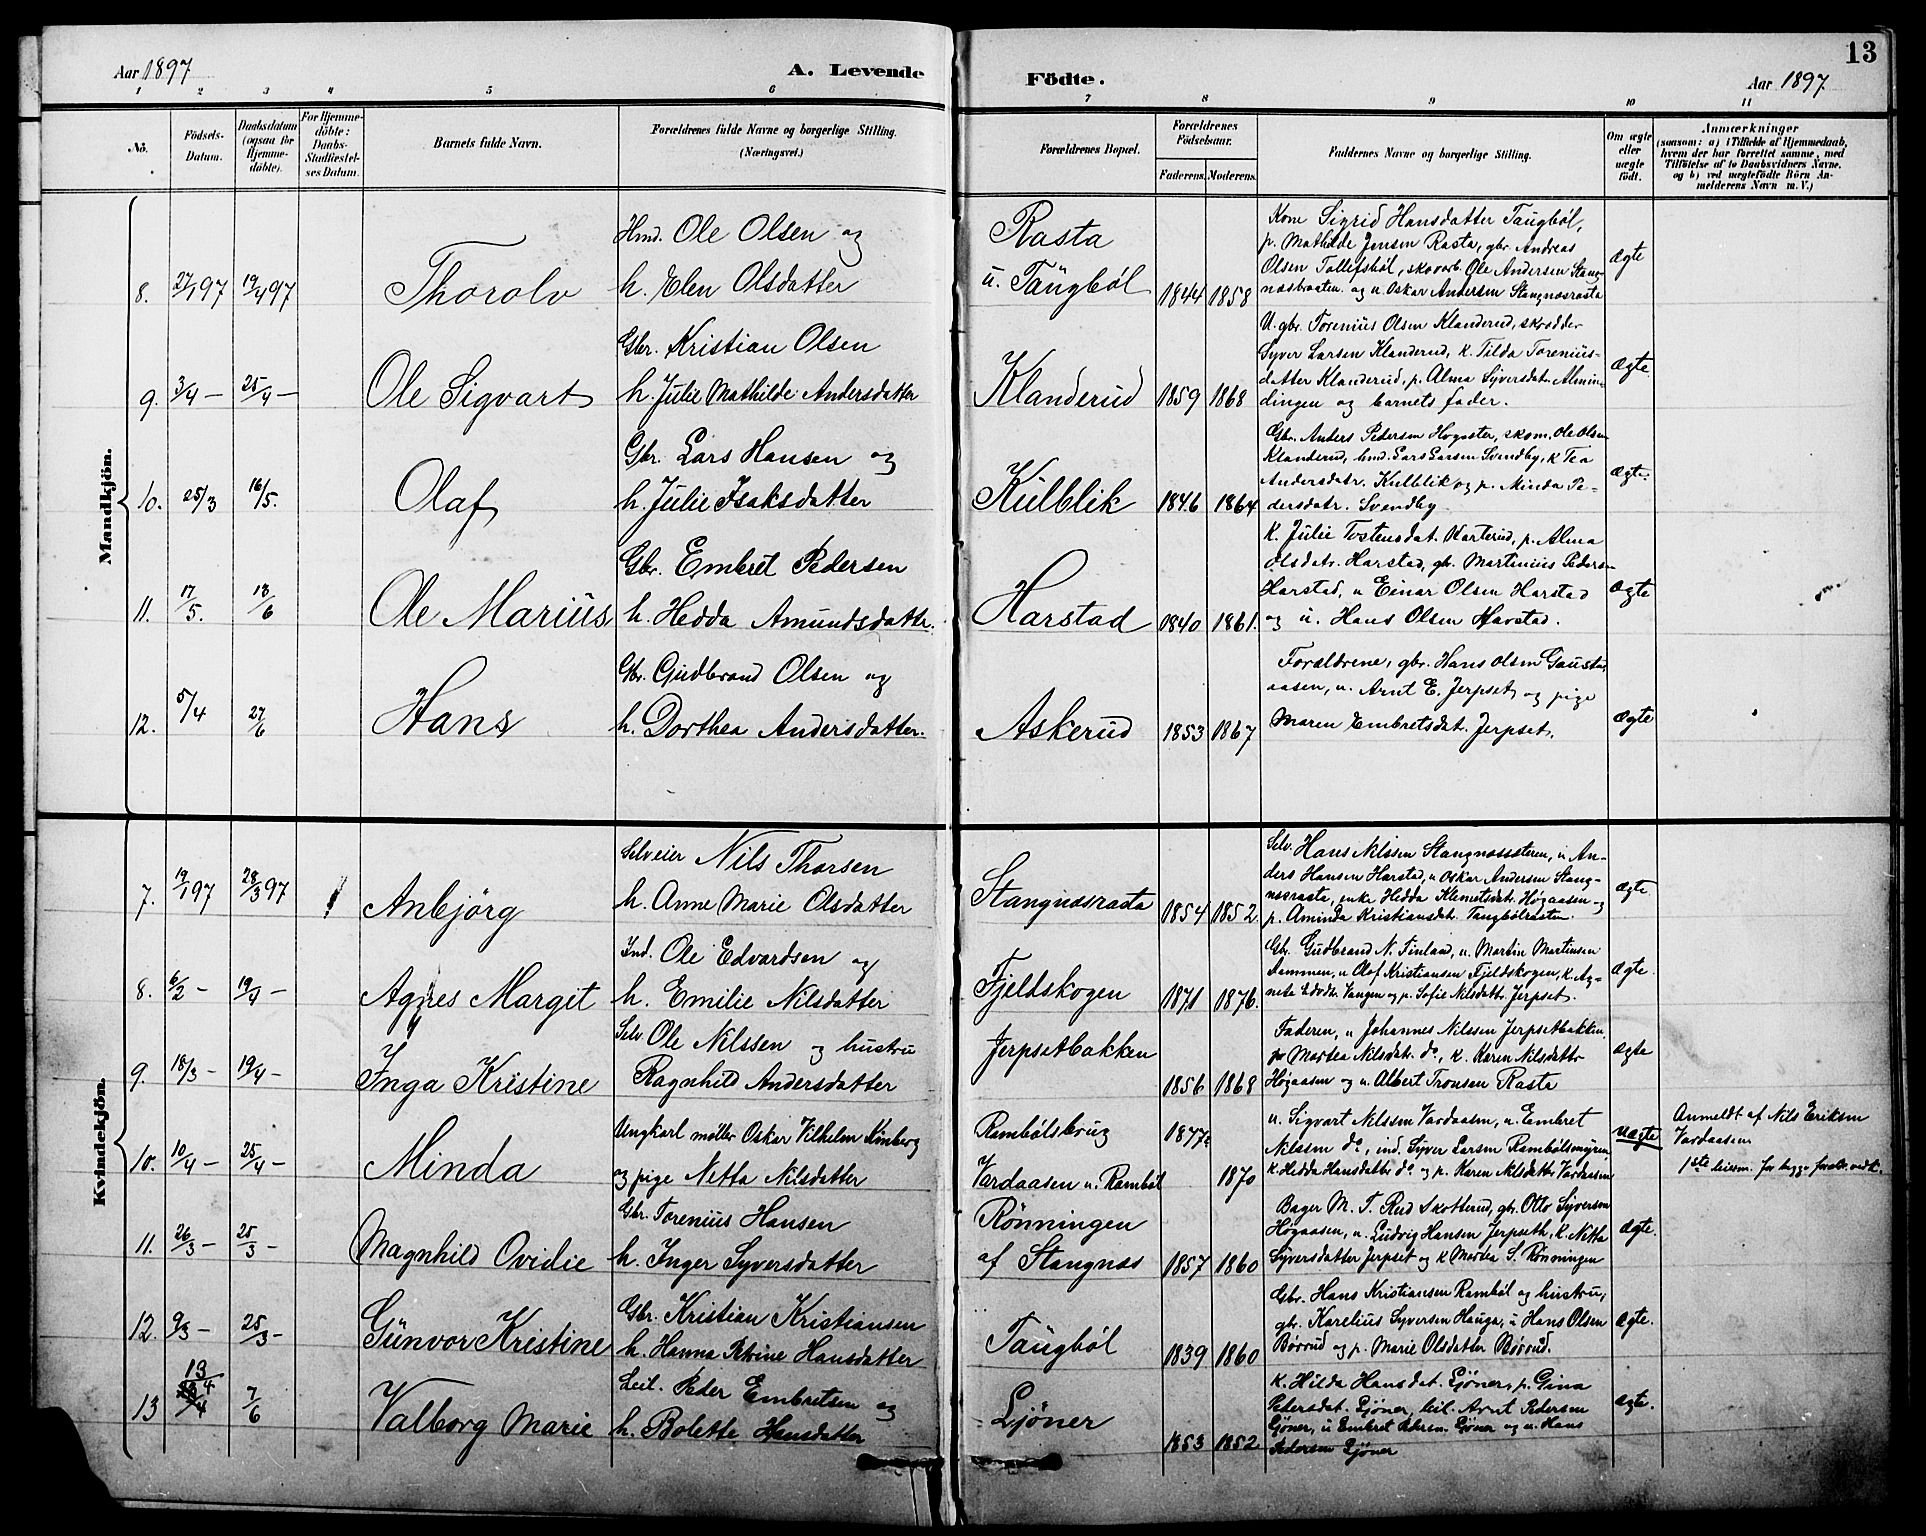 13
Aar 1897
A. Levende
Födte.
Aar 1897
1 2 3 4 5 6 7 8 9 10 11
No.
Födsels-
Datum.
Daabsdatum
(ogsaa for
Hjemme-
döbte).
For Hjemme-
döbte:
Daabs-
Stadfæstel-
ses Datum.
Barnets fulde Navn.
Forældrenes fulde Navne og borgerlige Stilling.
(Næringsvei.)
Forældrenes Bopæl.
Forældrenes
Födselsaar.
Faderens. Moderens.
Faddernes Navne og borgerlige Stilling.
Om ægte
eller
uægte
födt.
Anmærkninger
(saasom: a) i Tilfælde af Hjemmedaab,
hvem der har forrettet samme, med
Tilföielse af to Daabsvidners Navne,
og b) ved uægtefödte Börn An-
melderens Navn m. V.)
Mandkjön.
8. 27/1 97 19/4 97 Thorolv
Hmd. Ole Olsen og
h. Elen Olsdatter
Rasta
u. Taugböl 1844 1858
Kone Sigrid Hansdatter Taugböl,
p. Mathilde Jensen Rasta, gbr. Andreas
Olsen Tollefsböl, skovarb. Ole Andersen Stang-
næsbraaten og u. Oskar Andersen Stangnæsrasta
Ægte
9. 3/4 - 25/4 - Ole Sigvart
Gbr. Kristian Olsen
h. Julie Mathilde Andersdatter
Klanderud 1859 1868
U. gbr. Torenius Olsen Klanderud, skrædder
Syver Larsen Klanderud, K. Tilda Torenius-
datter Klanderud, p. Alma Syversdat. Almin-
dingen og barnets fader.
Ægte.
10. 25/3 16/5. Olaf
Gbr. Lars Hansen og
h. Julie Isaksdatter
Kulblik 1846 1864
Gbr. Anders Pedersen Hogseter, skom. Ole Olsen
Klanderud, hmd. Lars Larsen Svendby, K Tea
Andersdatr. Kulblik og p. Minda Pe-
dersdatr. Svendby.
Ægte.
11. 17/5. 18/6 Ole Marius
Gbr. Embret Pedersen
h. Hedda Amundsdatter.
Harstad 1840 1861.
K. Julie Tostensdat. Karterud, p. Alma
Olsdatr. Harstad, gbr. Martinius Pedersen
Harstad, u Einar Olsen Harstad
og u. Hans Olsen Harstad.
Ægte
12. 5/4 27/6 Hans
Gbr. Gudbrand Olsen og
h. Dorthea Andersdatter.
Askerud 1853 1867
Forældrene, gbr. Hans Olsen Gausta-
aasen, u. Arnt E. Jerpset og pige
Maren Embretsdat. Jerpset.
Ægte
Kvindekjön.
7. 19/1 97 28/3 97 Anbjörg
Selveier Nils Thorsen
h. Anne Marie Olsdatter
Stangnæsrasta 1854 1852.
Selv. Hans Nilssen Stangnæssæteren, u. An-
ders Hansen Harstad, u Oskar Andersen Stang-
næsrasta, enke Hedda Klemetsdat. Högaasen og
p. Aminda Kristiansdat. Taugbölrasten.
Ægte
8. 6/2 - 19/4 - Agnes Margit
Ind. Ole Edvardsen og
h. Emilie Nilsdatter
Fjeldskogen 1871 1876.
Gbr. Gudbrand N. Finlaad, u. Martin Martinsen
Dammen, u Olaf Kristiansen Fjeldskogen, K. Ag-
nete Edvdtr. Vangen og p. Sofie Nilsdattr Jerpset.
Ægte.
9. 18/3 - 19/4 - Inga Kristine
Selv. Ole Nilssen og hustru
Ragnhild Andersdatter
Jerpsetbakken 1856 1868
Faderen, u Johannes Nilssen Jerpsetbakken,
p Martea Nilsdatr. do, K. Karen Nilsdattr
Högaasen og u. Albert Tronsen Rasta
Ægte
10. 10/4 - 25/4 - Minda
Ungkarl møller Oskar Vilhelm Kinberg
og pige Netta Nilsdatter
Rambölsbrug 1877
Vardaasen u. Ramböl 1870
u. Sigvart Nilssen Vardaasen, u. Embret
Nilssen do, ind. Syver Larsen Rambölsmyren
K. Hedda Hansdatter do og p. Karen Nilsdattr Vardaasen
uægte
Anmeldt af Nils Eriksen
Vardaasen
1ste leierm. for begge foræld. vedk.
11. 26/3 - 25/3 - Magnhild Ovidie
Gbr. Torenius Hansen
h. Inger Syversdatter
Rönningen
af Stangnæs 1857 1860
Bager M. T. Rud Skotterud, gbr. Otto Syversen
Högaasen, u. Ludvig Hansen Jerpseth, K. Netta
Syversdatter Jerpset og K Martea S. Rönningen
Ægte.
12. 9/3 - 25/3 - Gunvor Kristine
Gbr. Kristian Kristiansen
h. Hanna Petrine Hansdatter
Taugböl 1839 1860
Gbr. Hans Kristiansen Ramböl og hustru,
gbr. Karelius Syversen Hauga, u Hans Olsen
Börrud og p. Marie Olsdatter Börrud.
Ægte.
13 13/4 7/6 Valborg Marie
Leil. Peder Embretsen og
h. Bolette Hansdatter
Ljöner 1853 1852.
K. Hilda Hansdat. Ljöner, p. Gina
Pedersdat. Ljöner, leil. Arnt Pedersen
Ljöner, u Embret Pedersn. Ljöner og u. Hans
Pedersen Ljöner
Ægte.